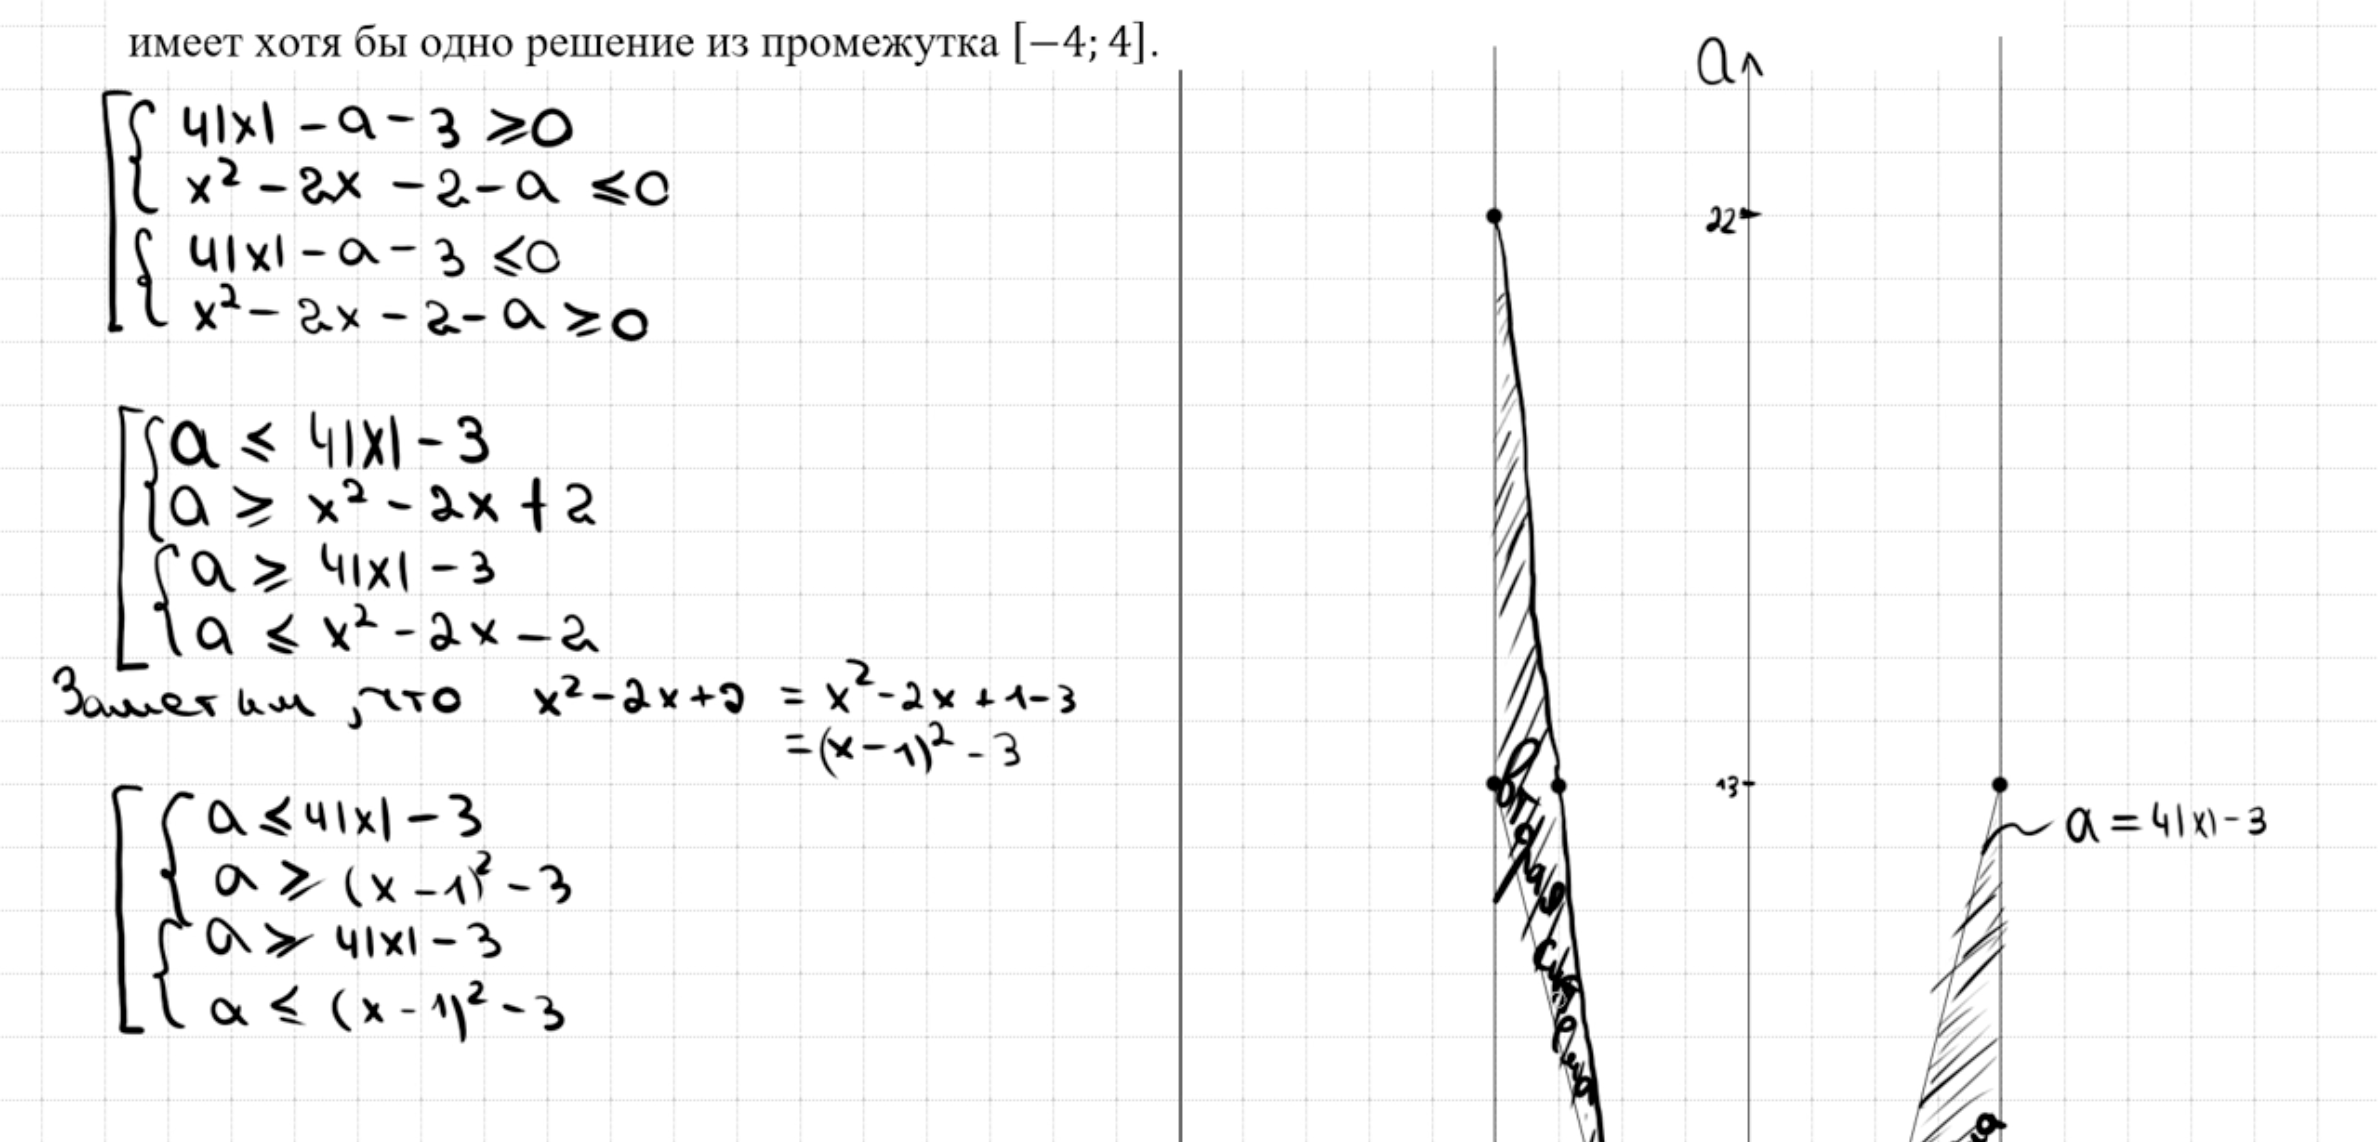 имеет хотя бы одно решение из промежутка [−4; 4].
4|x| - a - 3 ⩾ 0
x² - 2x - 2 - a ⩽ 0
4|x| - a - 3 ⩽ 0
x² - 2x - 2 - a ⩾ 0
a ⩽ 4|x| - 3
a ⩾ x² - 2x + 2
a ⩾ 4|x| - 3
a ⩽ x² - 2x - 2
Заметим, что x² - 2x + 2 = x² - 2x + 1 - 3
= (x - 1)² - 3
a ⩽ 4|x| - 3
a ⩾ (x - 1)² - 3
a ⩾ 4|x| - 3
a ⩽ (x - 1)² - 3
a
22
13
a = 4|x| - 3